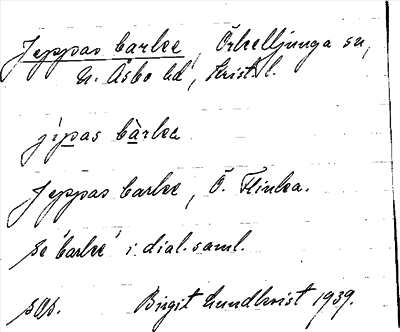 Jeppas barke, Örkelljunga sn,
N. Åsbo hd, Krist. l.
jìpas bàrka
Jeppas barke, Ö. Flinka.
se 'barke' i dial. saml.
sos. Birgit Lundkvist 1939.